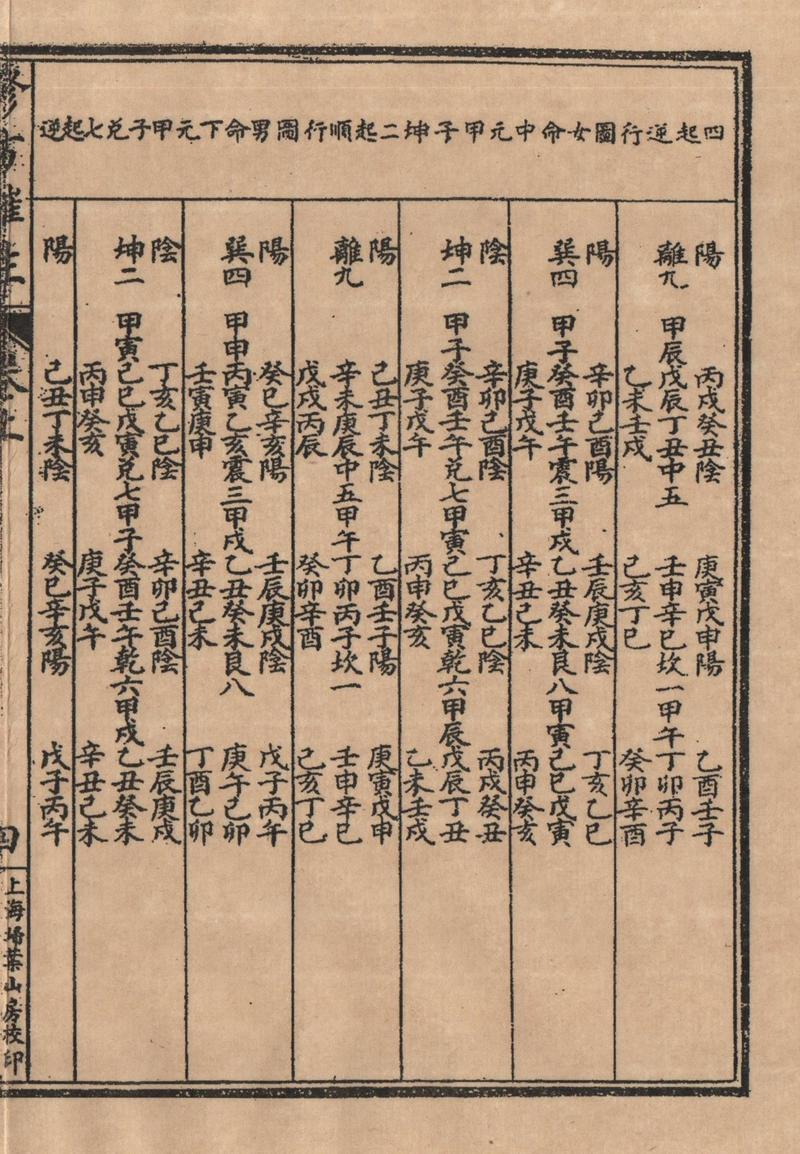 四起逆行圖女命中元甲子坤二起順行圖男命下元甲子兌七起逆
陽 丙戌癸丑陰 庚寅戊申陽 乙酉壬子
離九 甲辰戊辰丁丑中五 壬申辛巳坎一甲午丁卯丙子
乙未壬戌 己亥丁巳 癸卯辛酉
陽 辛卯己酉陽 壬辰庚戌陰 丁亥乙巳
巽四 甲子癸酉壬午震三甲戌乙丑癸未艮八甲寅己巳戊寅
庚子戊午 辛丑己未 丙申癸亥
陰 辛卯己酉陰 丁亥乙巳陰 丙戌癸丑
坤二 甲子癸酉壬午兌七甲寅己巳戊寅乾六甲辰戊辰丁丑
庚子戊午 丙申癸亥 乙未壬戌
陽 己丑丁未陰 乙酉壬子陽 庚寅戊申
離九 辛未庚辰中五甲午丁卯丙子坎一 壬申辛巳
戊戌丙辰 癸卯辛酉 己亥丁巳
陽 癸巳辛亥陽 壬辰庚戌陰 戊子丙午
巽四 甲申丙寅乙亥震三甲戌乙丑癸未艮八 庚午己卯
壬寅庚申 辛丑己未 丁酉乙卯
陰 丁亥乙巳陰 辛卯己酉陰 壬辰庚戌
坤二 甲寅己巳戊寅兌七甲子癸酉壬午乾六甲戌乙丑癸未
丙申癸亥 庚子戊午 辛丑己未
陽 己丑丁未陰 癸巳辛亥陽 戊子丙午
上海埽葉山房校印